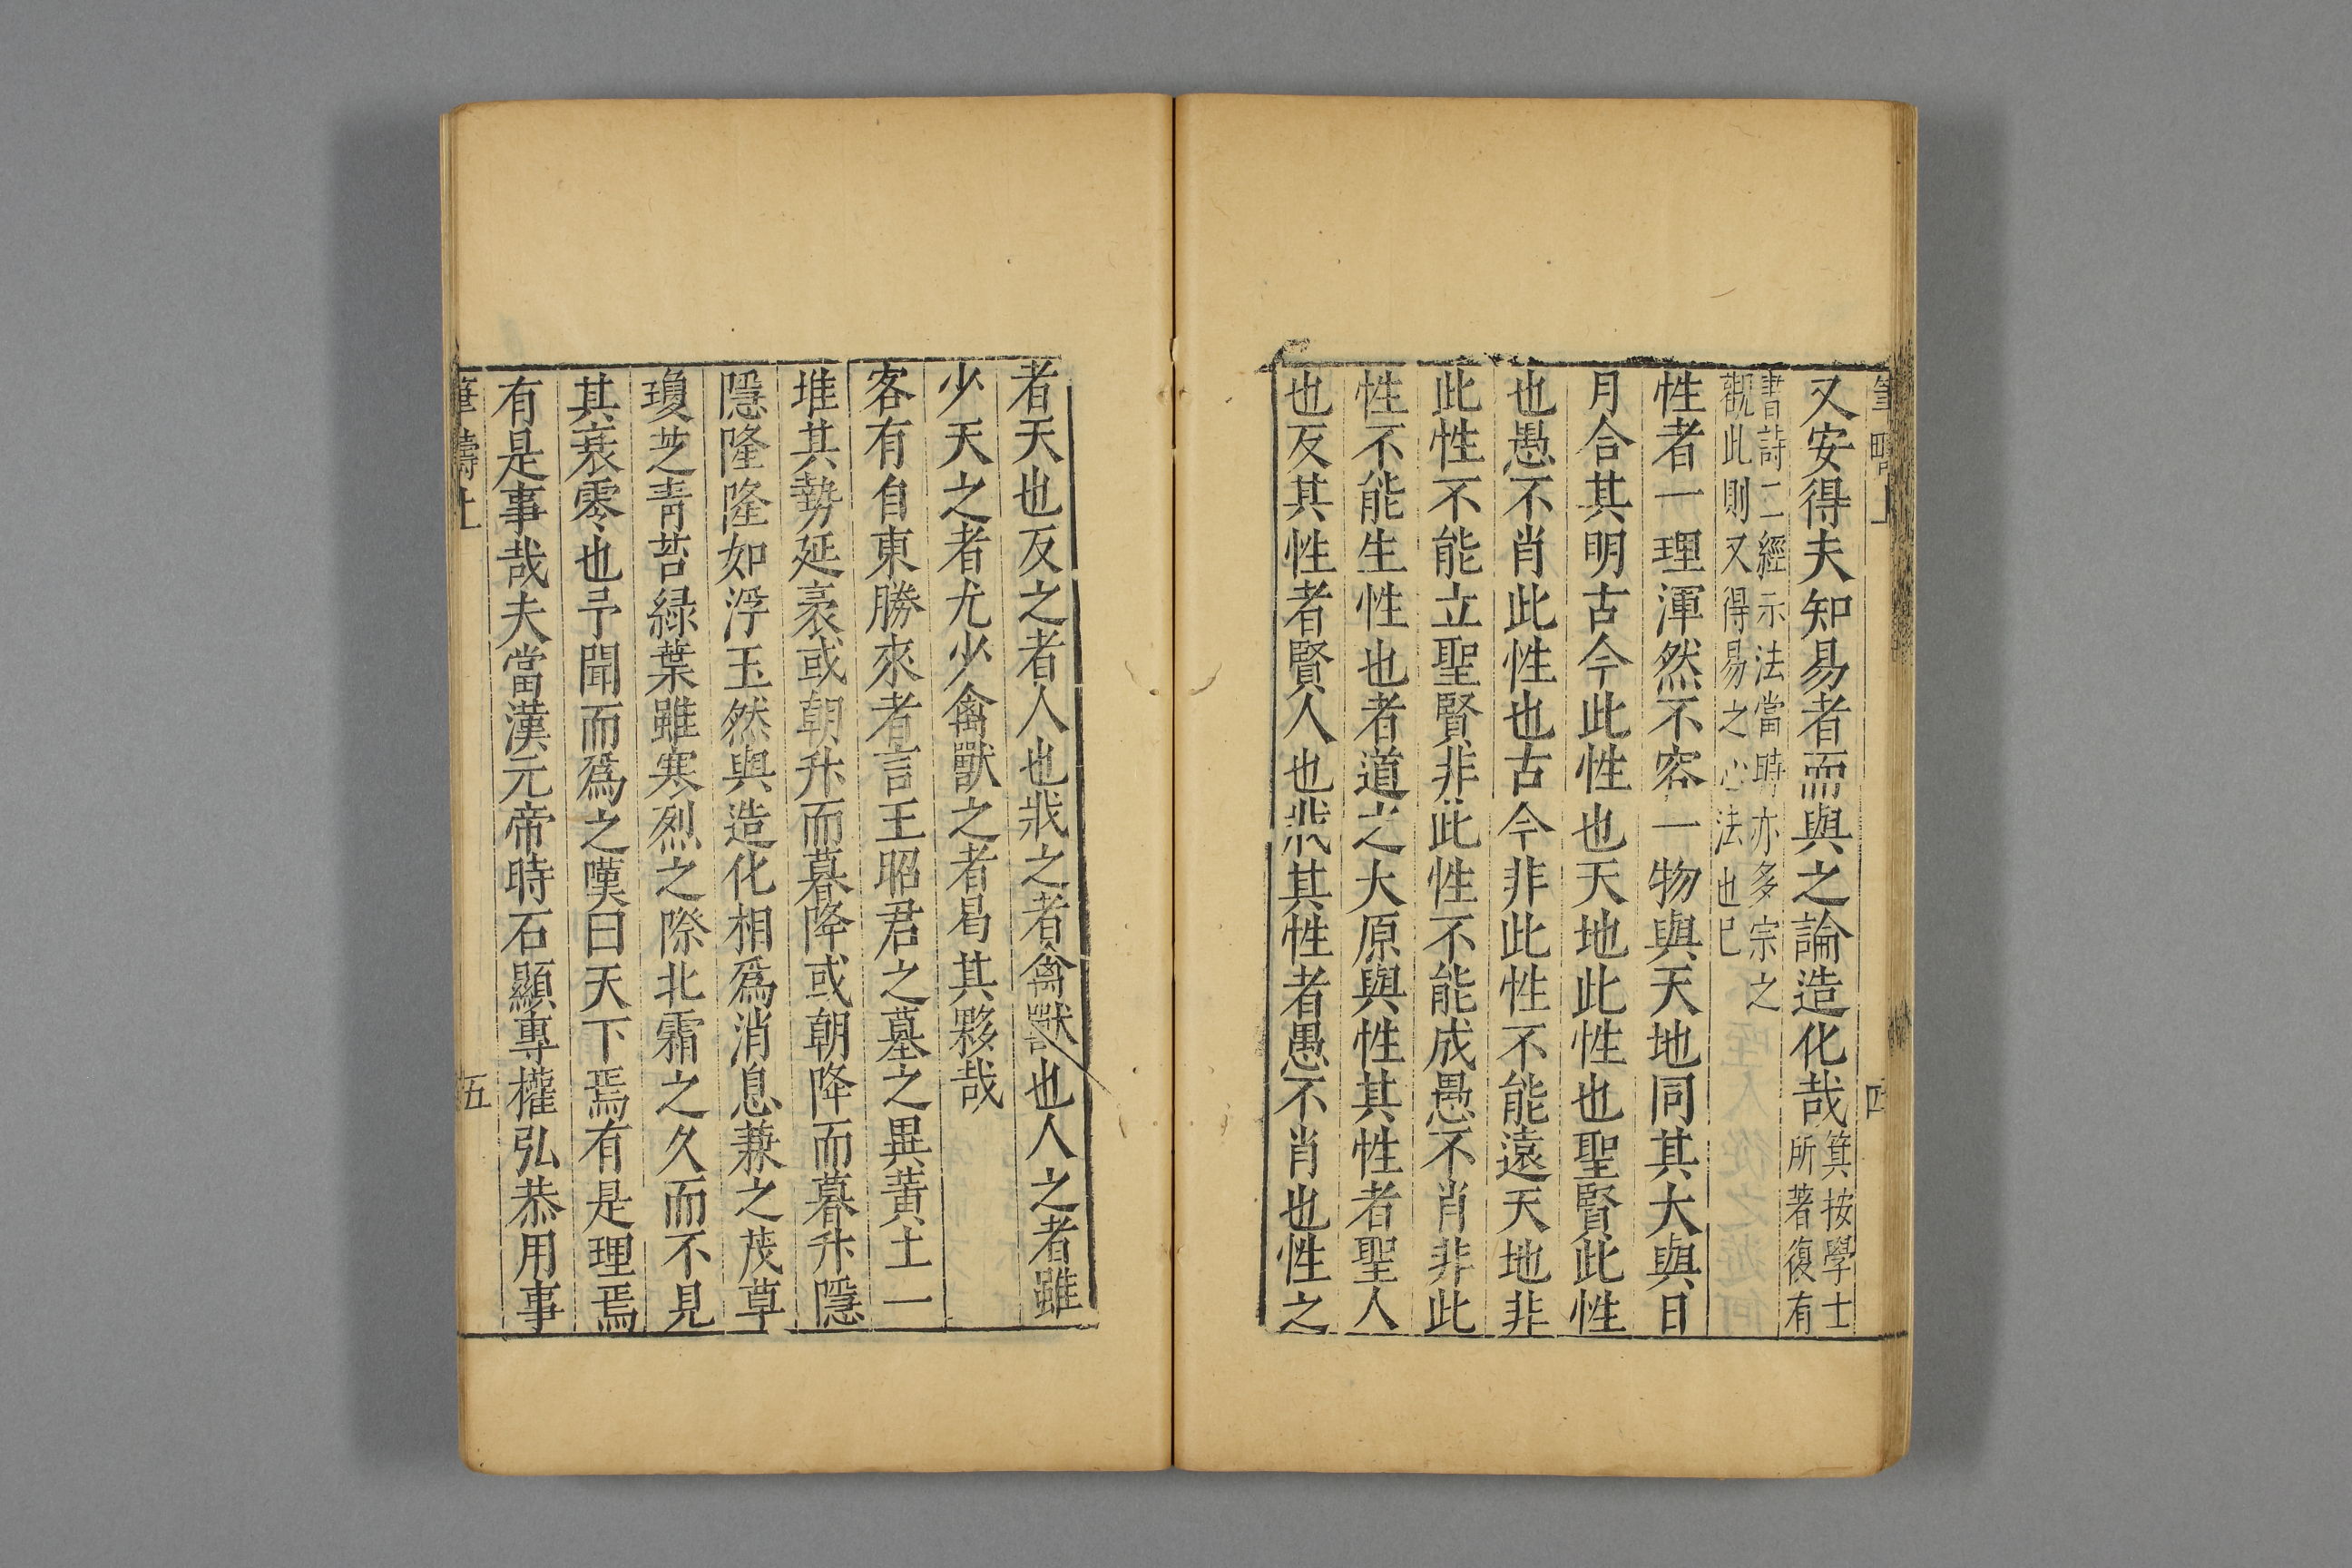 又安得夫知易者而與之論造化哉箕按學士所著復有
書詩二經示法當時亦多宗之觀此則又得易之心法也已
性者一理渾然不容一物與天地同其大與日
月合其明古今此性也天地此性也聖賢此性
也愚不肖此性也古今非此性不能遠天地非
此性不能立聖賢非此性不能成愚不肖非此
性不能生性也者道之大原與性其性者聖人
也反其性者賢人也悲其性者愚不肖也性之
者天也反之者人也戕之者禽獸也人之者雖
少天之者尤少禽獸之者曷其夥哉
客有自東勝來者言王昭君之墓之異黃土一
堆其勢延袤或朝升而暮降或朝降而暮升隱
隱隆隆如浮玉然與造化相爲消息兼之茂草
瓊芝青苔綠葉雖寒烈之際北霜之久而不見
其衰零也予聞而爲之嘆曰天下焉有是理焉
有是事哉夫當漢元帝時石顯專權弘恭用事
筆疇上
五